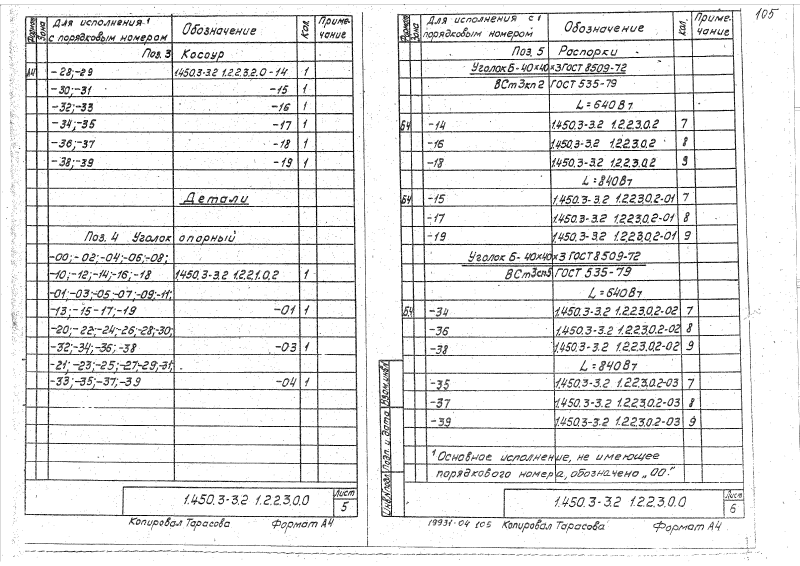 Формат Зона Для исполнения ¹ с порядковым номером Обозначение Кол. Примечание
Поз. 3 Косоур
А4 -28;-29 1.450.3-3.2 1.2.2.3.2.0 -14 1
-30;-31 -15 1
-32;-33 -16 1
-34;-35 -17 1
-36;-37 -18 1
-38;-39 -19 1
Детали
Поз. 4 Уголок опорный
-00;-02;-04;-06;-08;
-10;-12;-14;-16;-18 1.450.3-3.2 1.2.2.1.0.2 1
-01;-03;-05;-07;-09;-11;
-13;-15-17;-19 -01 1
-20;-22;-24;-26;-28;-30;
-32;-34;-36;-38 -03 1
-21;-23;-25;-27;-29;-31;
-33;-35;-37;-39 -04 1
1.450.3-3.2 1.2.2.3.0.0 Лист 5
Копировал Тарасова Формат А4
105
Формат Зона Для исполнения с ¹ порядковым номером Обозначение Кол. Примечание
Поз. 5 Распорки
Уголок Б-40×40×3 ГОСТ 8509-72
ВСт3кп2 ГОСТ 535-79
L=640
Б4 -14 1.450.3-3.2 1.2.2.3.0.2 7
-16 1.450.3-3.2 1.2.2.3.0.2 8
-18 1.450.3-3.2 1.2.2.3.0.2 9
L=840
Б4 -15 1.450.3-3.2 1.2.2.3.0.2-01 7
-17 1.450.3-3.2 1.2.2.3.0.2-01 8
-19 1.450.3-3.2 1.2.2.3.0.2-01 9
Уголок Б-40×40×3 ГОСТ 8509-72
ВСт3сп5 ГОСТ 535-79
L=640
Б4 -34 1.450.3-3.2 1.2.2.3.0.2-02 7
-36 1.450.3-3.2 1.2.2.3.0.2-02 8
-38 1.450.3-3.2 1.2.2.3.0.2-02 9
L=840
-35 1.450.3-3.2 1.2.2.3.0.2-03 7
-37 1.450.3-3.2 1.2.2.3.0.2-03 8
-39 1.450.3-3.2 1.2.2.3.0.2-03 9
¹ Основное исполнение, не имеющее
порядкового номера, обозначено „00."
Инв.№подл. Подп. и дата Взам.инв.№
1.450.3-3.2 1.2.2.3.0.0 Лист 6
19931-04 105 Копировал Тарасова Формат А4